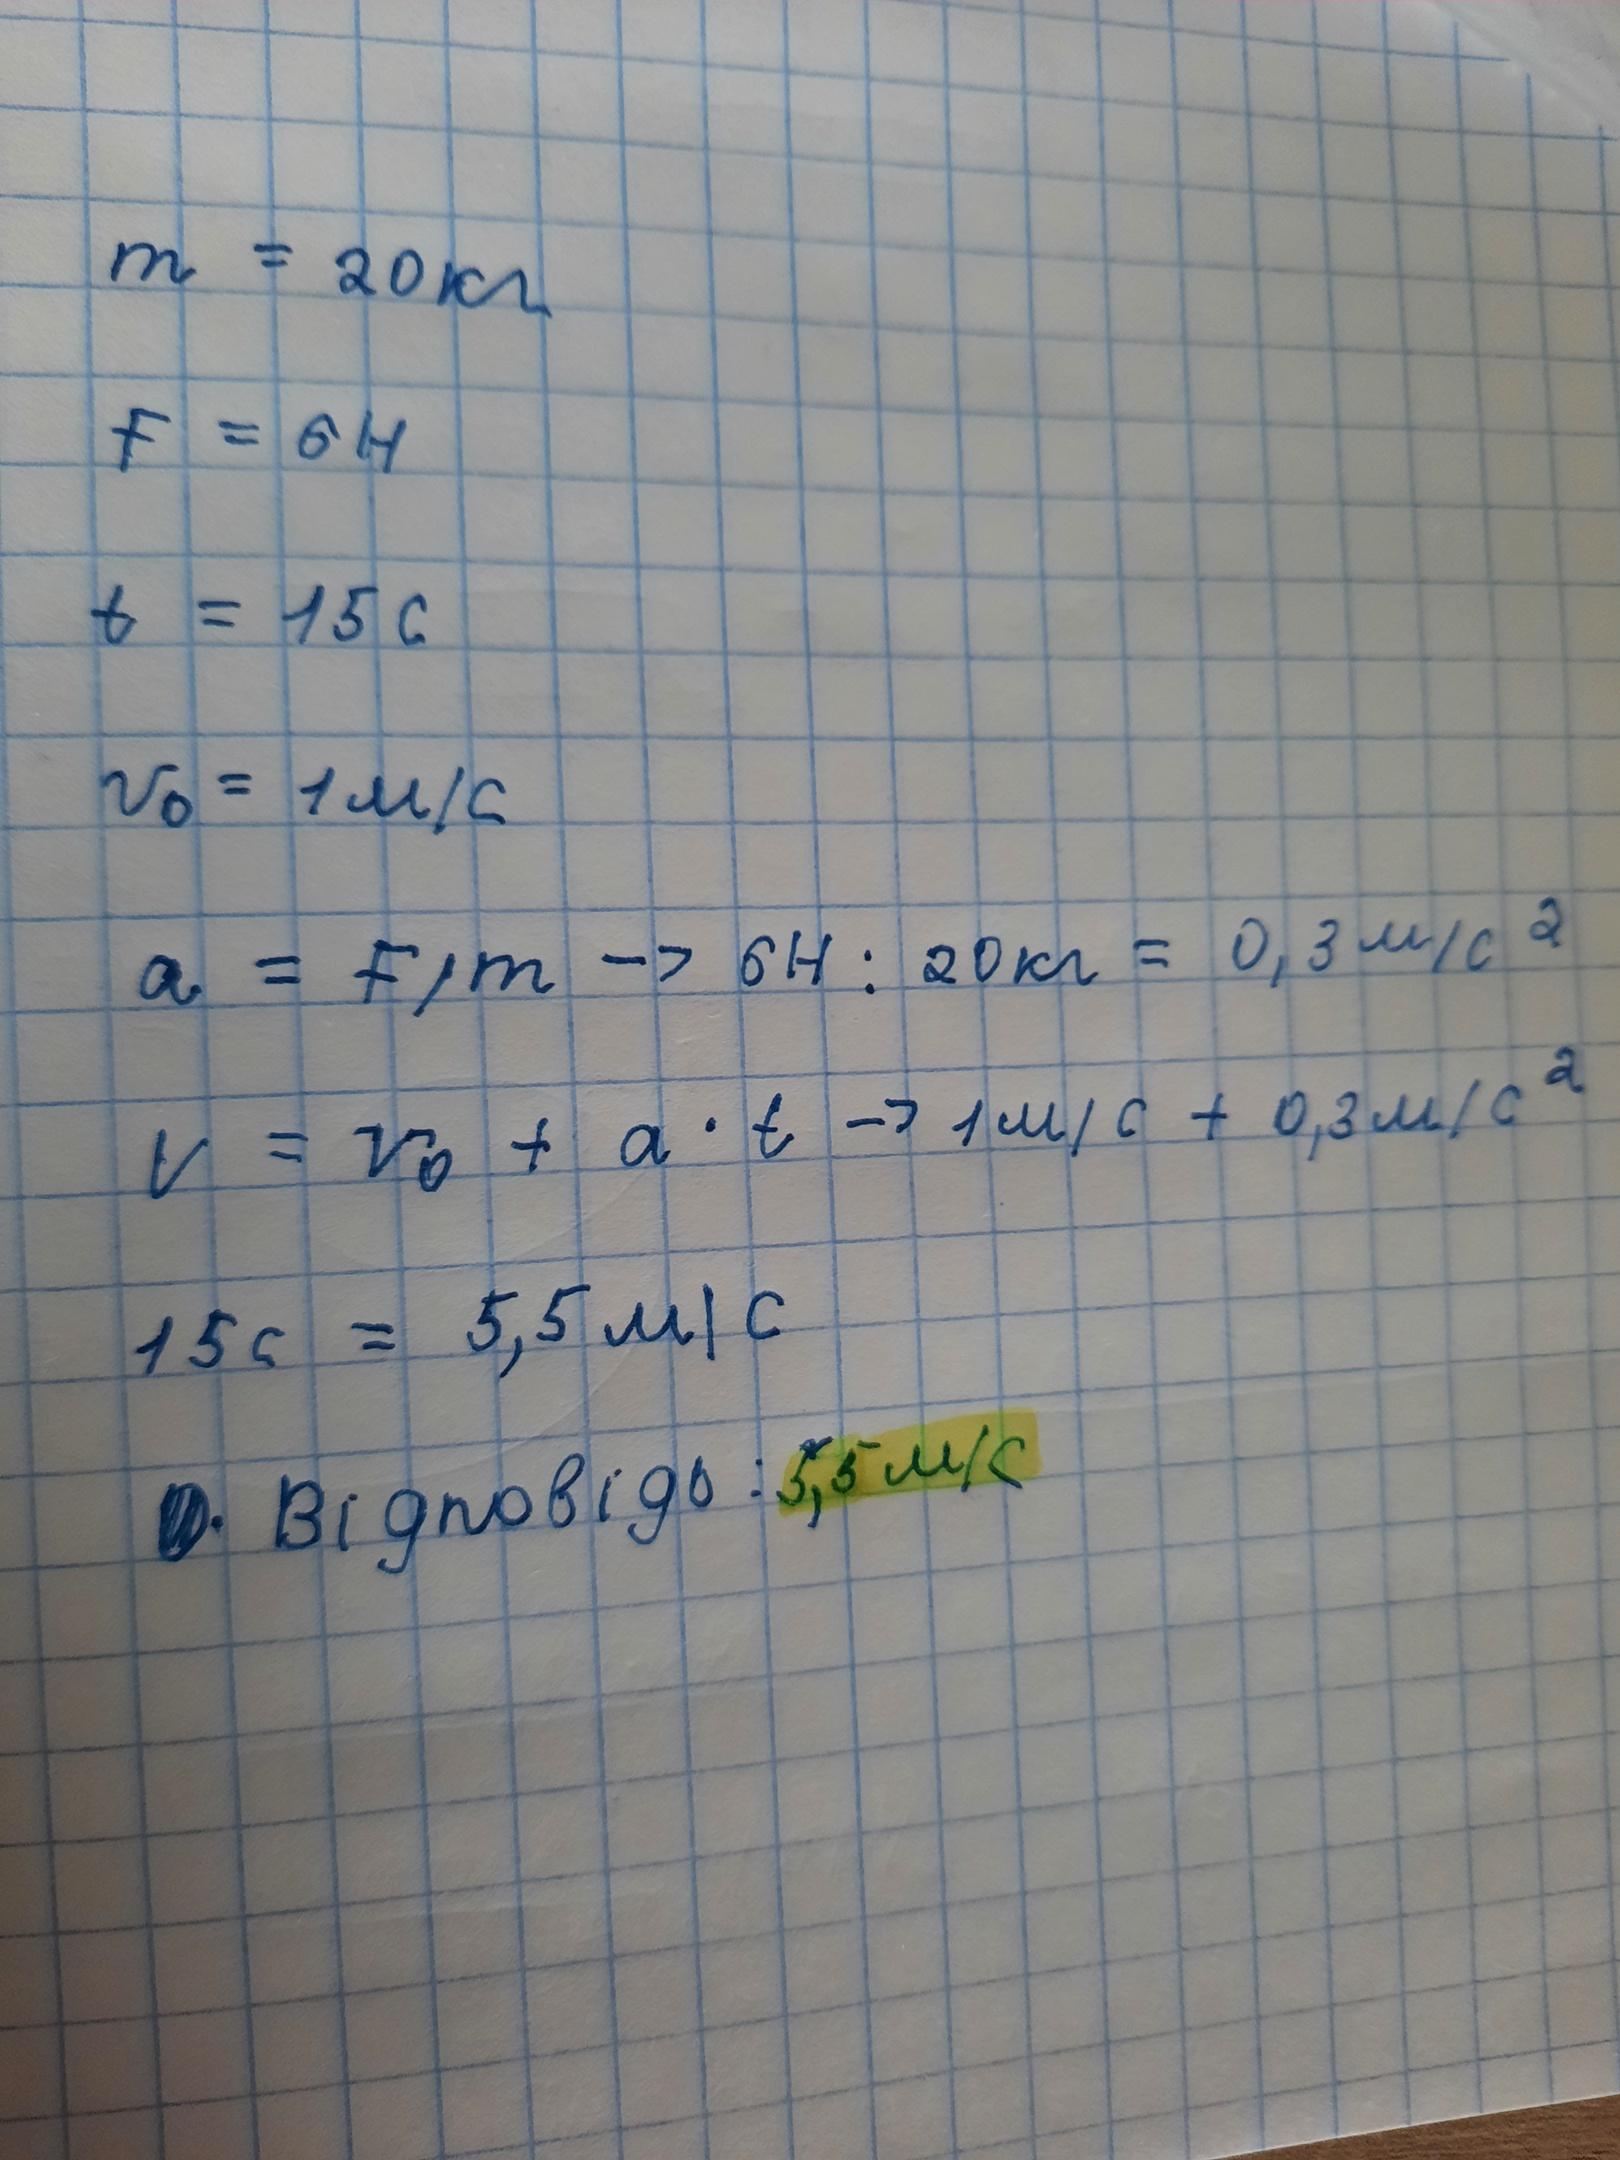 m = 20кг
F = 6Н
t = 15с
v₀ = 1м/с
a = F/m -> 6Н : 20кг = 0,3м/с²
V = v₀ + a · t -> 1м/с + 0,3м/с²
15с = 5,5м/с
Відповідь: 5,5м/с